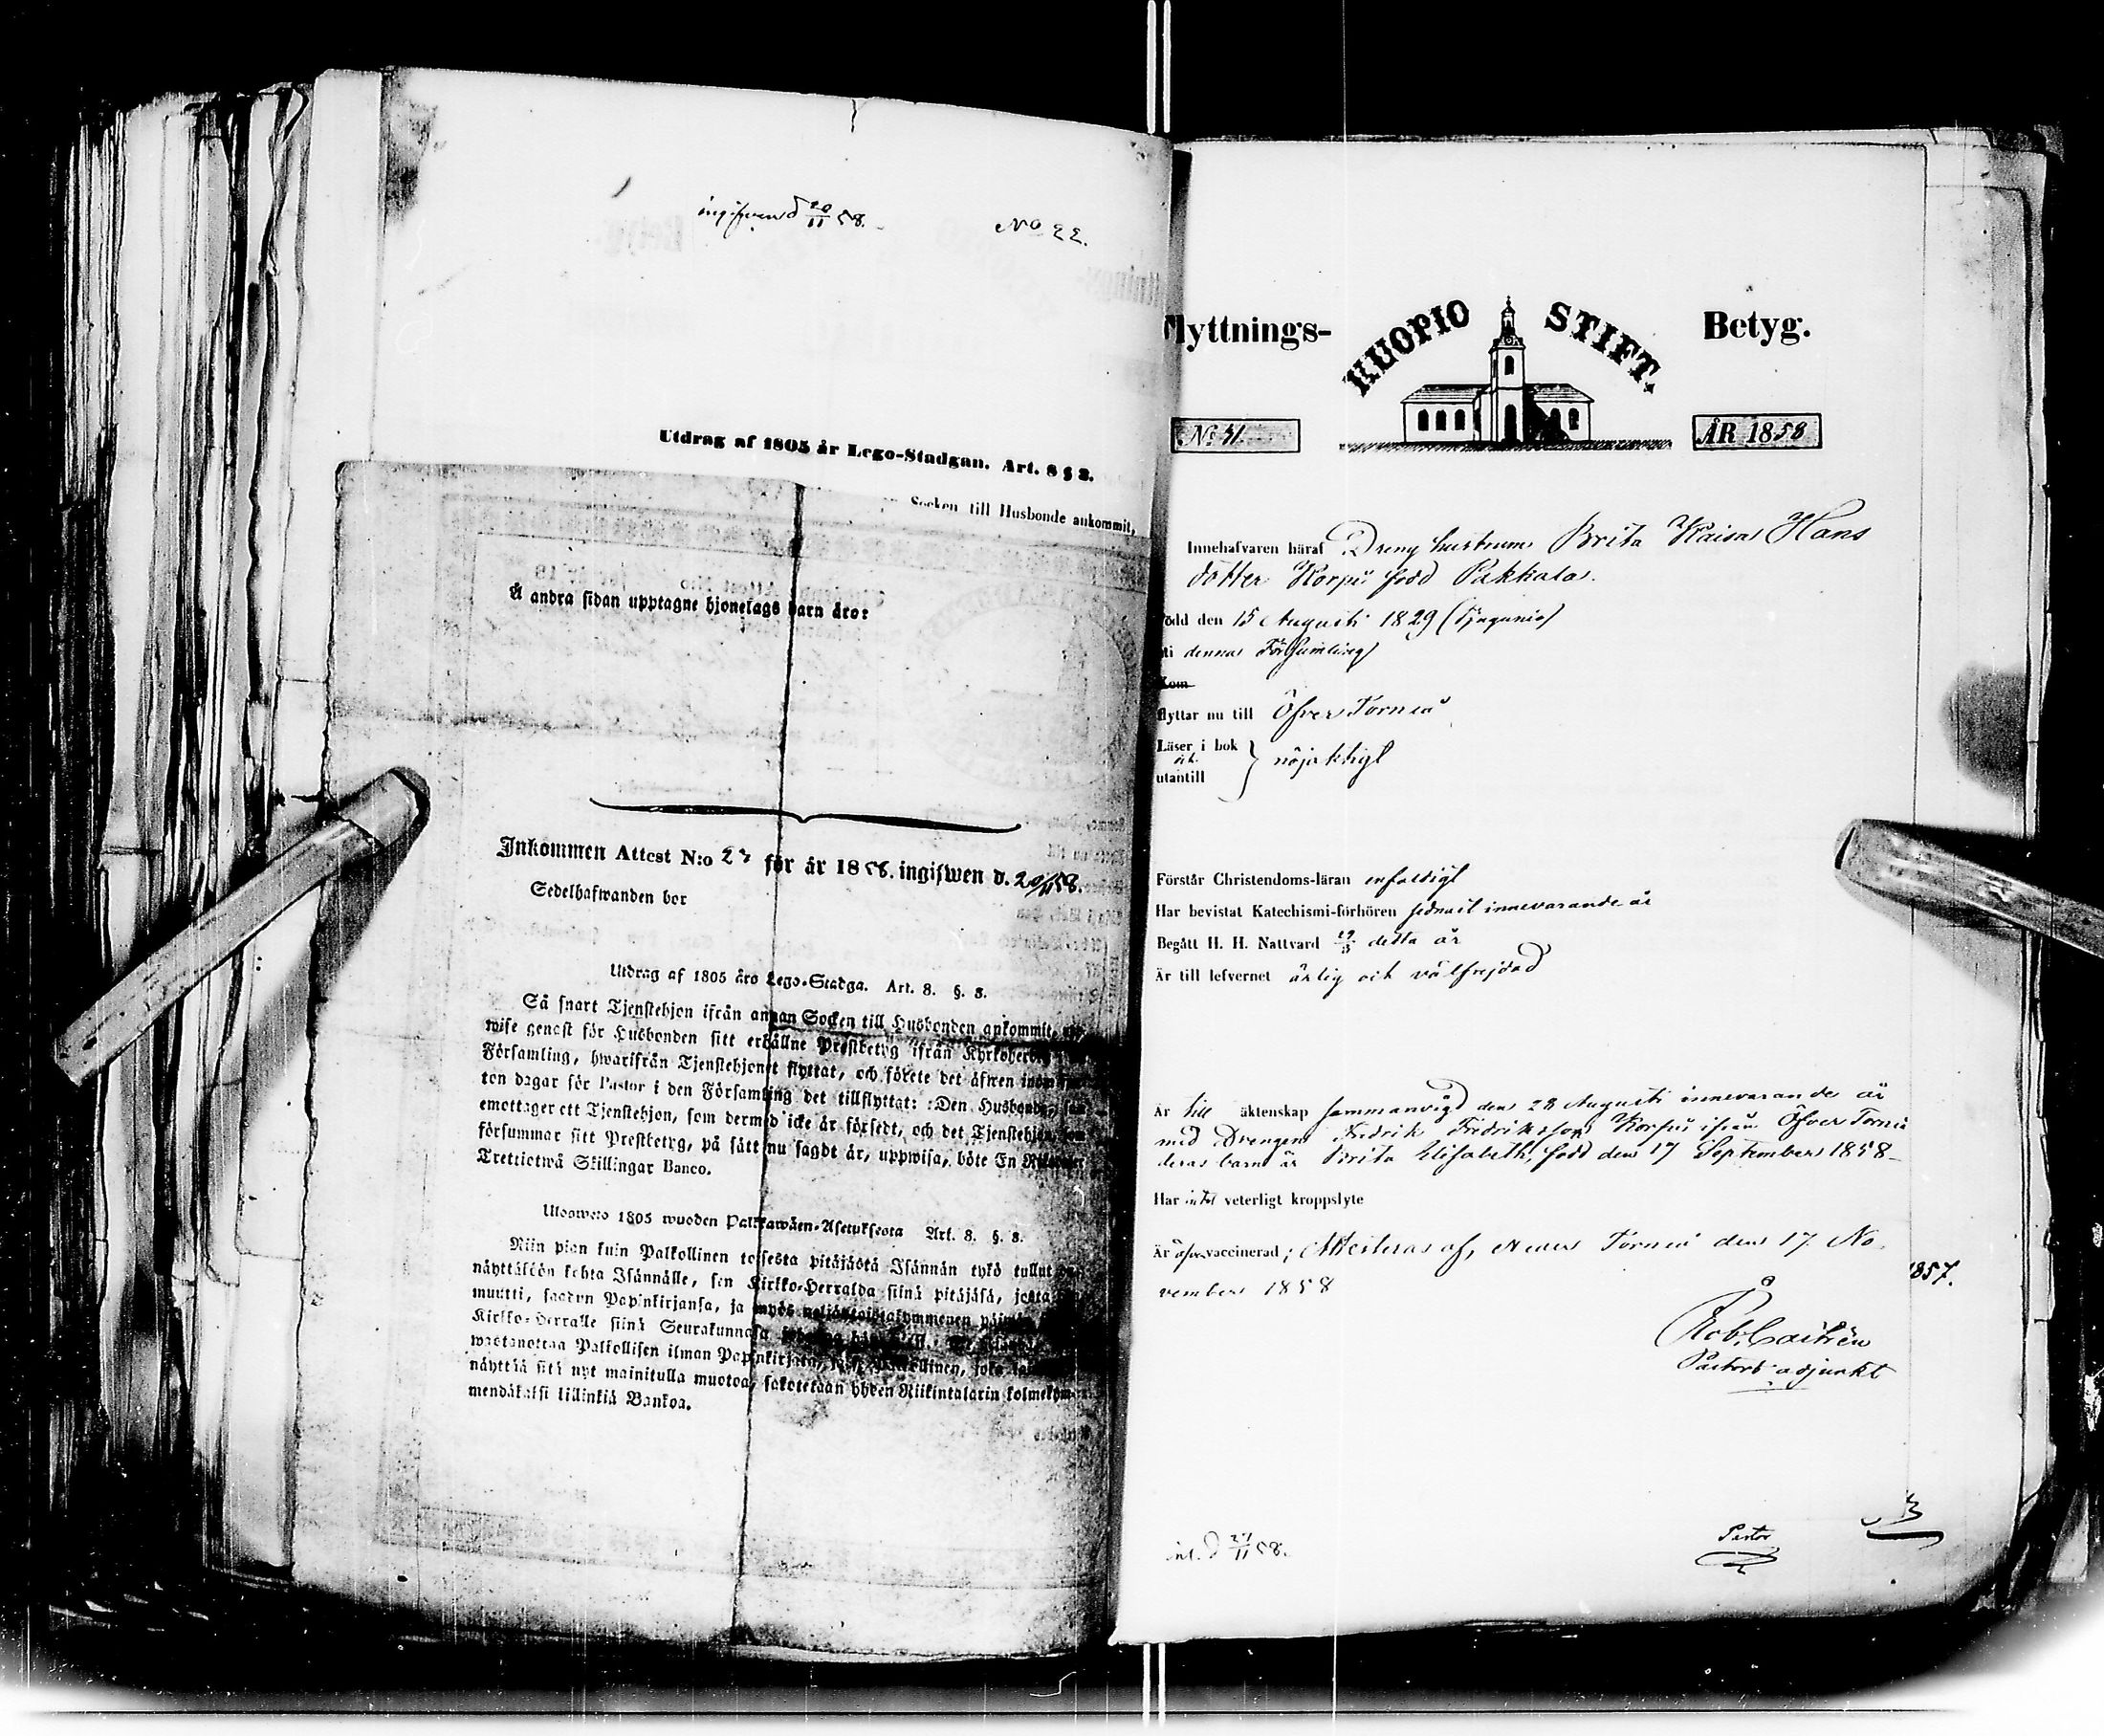 ingifven d 20/11 58.
No 22.
Utdrag af 1805 år Lego-Stadgan. Art. 8 § 3.
Socken till Husbonde ankommit,
Å andra sidan upptagne hjonelags barn äro:
Inkommen Attest N:o 23 för år 1858. ingifwen d. 20/11 58.
Sedelhafwanden bor
Utdrag af 1805 års Lego-Stadga. Art. 8. §. 3.
Så snart Tjenstehjon ifrån annan Socken till Husbonden ankommit,
wise genast för Husbonden sitt erhållne Prestbetyg ifrån
Församling, hwarifrån Tjenstehjonet flyttat, och förete det äfwen inom
ton dagar för Pastor i den Församling det tillflyttat: Den Husbonde,
emottager ett Tjenstehjon, som dermed icke är försedt, och det Tjenstehjon,
försummar sitt Prestbetyg, på sätt nu sagdt är, uppwisa, böte En
Trettiotwå Skillingar Banco.
Ulosweto 1805 wuoden Palkkawäen-Asetuksesta Art. 8. §. 3.
Niin pian kuin Palkollinen toisesta pitäjästä Isännän tykö tullut
näyttäköön kohta Isännälle, sen Kirkko-Herralda siinä pitäjäsä, josta
muutti, saadun Papinkirjansa, ja myös
Kirkko-Herralle siinä Seurakunnasa
wastanottaa Palkollisen ilman Papinkirjata,
näyttää sitä nyt mainitulla muotoa, sakotetaan yhden Riikintalarin
mendäkaksi killinkiä Bankoa.
Flyttnings-
KUOPIO STIFT.
Betyg.
No 41
ÅR 1858
Innehafvaren häraf Dreng hustrun Brita Kaisa Hans
dotter Korpi född Pakkala.
född den 15 Augusti 1829 (Tjugunio)
i denna Församling
Kom
flyttar nu till Öfver Torneå
Läser i bok
och
utantill } nöjaktigt
Förstår Christendoms-läran enfaldigt
Har bevistat Katechismi-förhören sednast innevarande år
Begått H. H. Nattvard detta år
Är till lefvernet ärlig och välfrejdad
Är till äktenskap sammanvigd den 28 Augusti innevarande år
med Drengen Fredrik Fredriksson Korpi ifrån Öfver Torneå
deras barn är Brita Elisabeth, född den 17 September 1858
Har intet veterligt kroppslyte
Är vaccinerad; Attesteras af, Neder Torneå den 17 No-
vember 1858
1857.
Rob. Castrén
Pastors adjunkt
inl. d 27/11 58.
Pastor